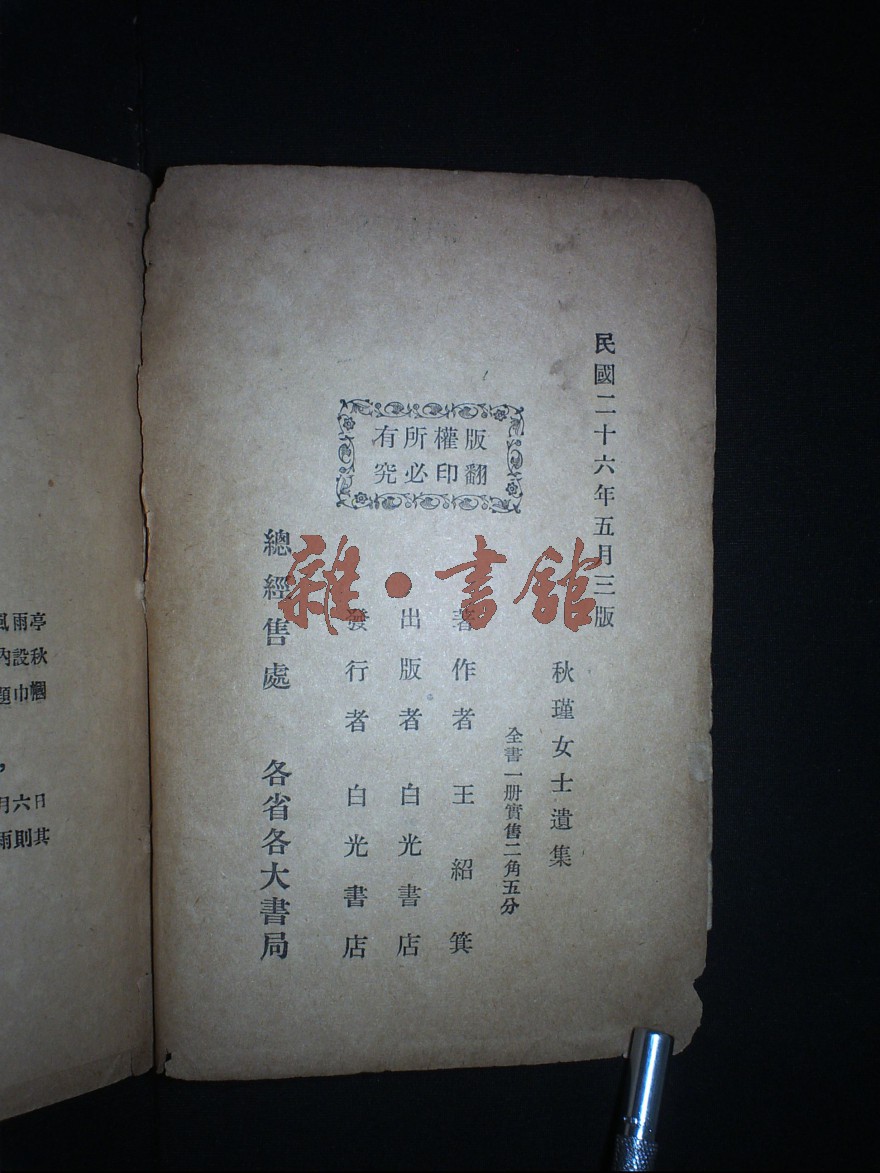 民國二十六年五月三版
秋瑾女士遺集
全書一册實售二角五分
著作者 王紹箕
出版者 白光書店
發行者 白光書店
總經售處 各省各大書局
版權所有
翻印必究
雜·書館
風雨亭
內設秋
題巾幗
月六日
雨則其